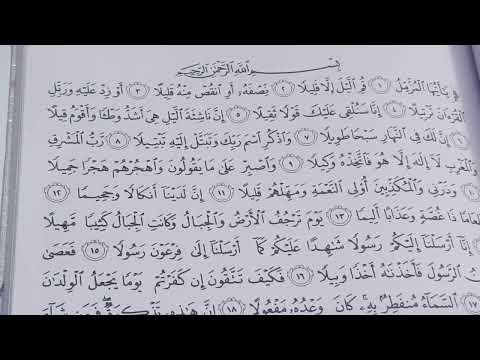 بِسْمِ ٱللَّهِ ٱلرَّحْمَٰنِ ٱلرَّحِيمِ
يَٰٓأَيُّهَا ٱلْمُزَّمِّلُ ١ قُمِ ٱلَّيْلَ إِلَّا قَلِيلًا ٢ نِّصْفَهُۥٓ أَوِ ٱنقُصْ مِنْهُ قَلِيلًا ٣ أَوْ زِدْ عَلَيْهِ وَرَتِّلِ
ٱلْقُرْءَانَ تَرْتِيلًا ٤ إِنَّا سَنُلْقِى عَلَيْكَ قَوْلًا ثَقِيلًا ٥ إِنَّ نَاشِئَةَ ٱلَّيْلِ هِىَ أَشَدُّ وَطْـًٔا وَأَقْوَمُ قِيلًا
٦ إِنَّ لَكَ فِى ٱلنَّهَارِ سَبْحًا طَوِيلًا ٧ وَٱذْكُرِ ٱسْمَ رَبِّكَ وَتَبَتَّلْ إِلَيْهِ تَبْتِيلًا ٨ رَّبُّ ٱلْمَشْرِقِ
وَٱلْمَغْرِبِ لَآ إِلَٰهَ إِلَّا هُوَ فَٱتَّخِذْهُ وَكِيلًا ٩ وَٱصْبِرْ عَلَىٰ مَا يَقُولُونَ وَٱهْجُرْهُمْ هَجْرًا جَمِيلًا
١٠ وَذَرْنِى وَٱلْمُكَذِّبِينَ أُو۟لِى ٱلنَّعْمَةِ وَمَهِّلْهُمْ قَلِيلًا ١١ إِنَّ لَدَيْنَآ أَنكَالًا وَجَحِيمًا ١٢
ذَا غُصَّةٍ وَعَذَابًا أَلِيمًا ١٣ يَوْمَ تَرْجُفُ ٱلْأَرْضُ وَٱلْجِبَالُ وَكَانَتِ ٱلْجِبَالُ كَثِيبًا مَّهِيلًا
إِنَّآ أَرْسَلْنَآ إِلَيْكُمْ رَسُولًا شَٰهِدًا عَلَيْكُمْ كَمَآ أَرْسَلْنَآ إِلَىٰ فِرْعَوْنَ رَسُولًا ١٥ فَعَصَىٰ
ٱلرَّسُولَ فَأَخَذْنَٰهُ أَخْذًا وَبِيلًا ١٦ فَكَيْفَ تَتَّقُونَ إِن كَفَرْتُمْ يَوْمًا يَجْعَلُ ٱلْوِلْدَٰنَ
١٧ ٱلسَّمَآءُ مُنفَطِرٌۢ بِهِۦ كَانَ وَعْدُهُۥ مَفْعُولًا ١٨ إِنَّ هَٰذِهِۦ تَذْكِرَةٌ فَمَن شَآءَ